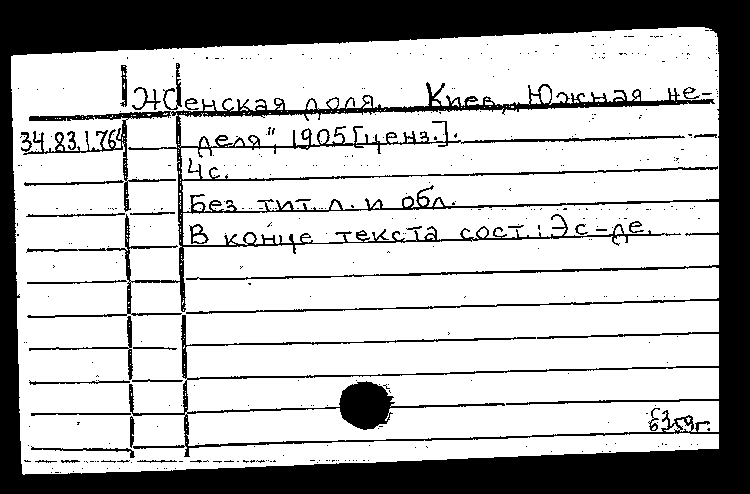 Женская доля. Киев, „Южная не-
34.83.1.764 деля", 1905 [ценз.].
4 с.
Без тит. л. и обл.
В конце текста сост.: Эс-де.